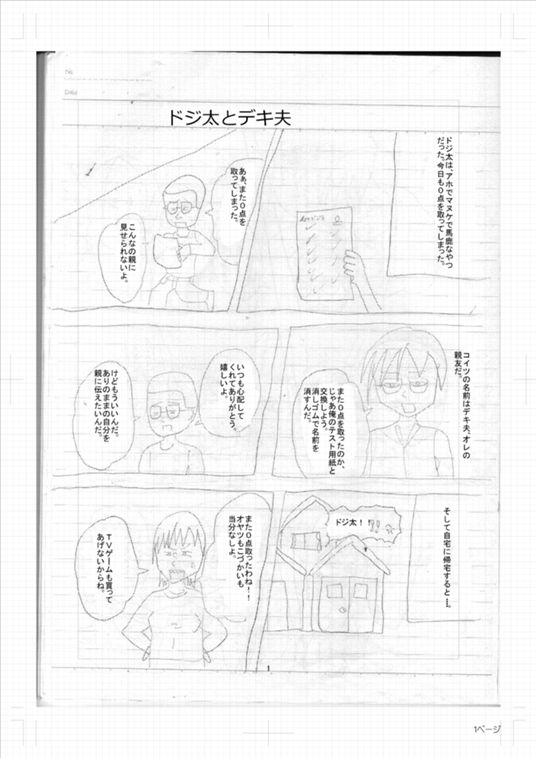 No.
Date
ドジ太とデキ夫
ドジ太は、アホでマヌケで馬鹿なやつ
だった。今日も０点を取ってしまった。
0
あぁ、また０点を
取ってしまった。
こんなの親に
見せられないよ。
コイツの名前はデキ夫、オレの
親友だ。
また０点を取ったのか、
じゃあ俺のテスト用紙と
交換しよう。
消しゴムで名前を
消すんだ。
いつも心配して
くれてありがとう。
嬉しいよ。
けどもういいんだ。
ありのままの自分を
親に伝えたいんだ。
そして自宅に帰宅すると…。
ドジ太！！
また０点取ったわね！！
オヤツもこづかいも
当分なしよ。
ＴＶゲームも買って
あげないからね。
1
1ページ